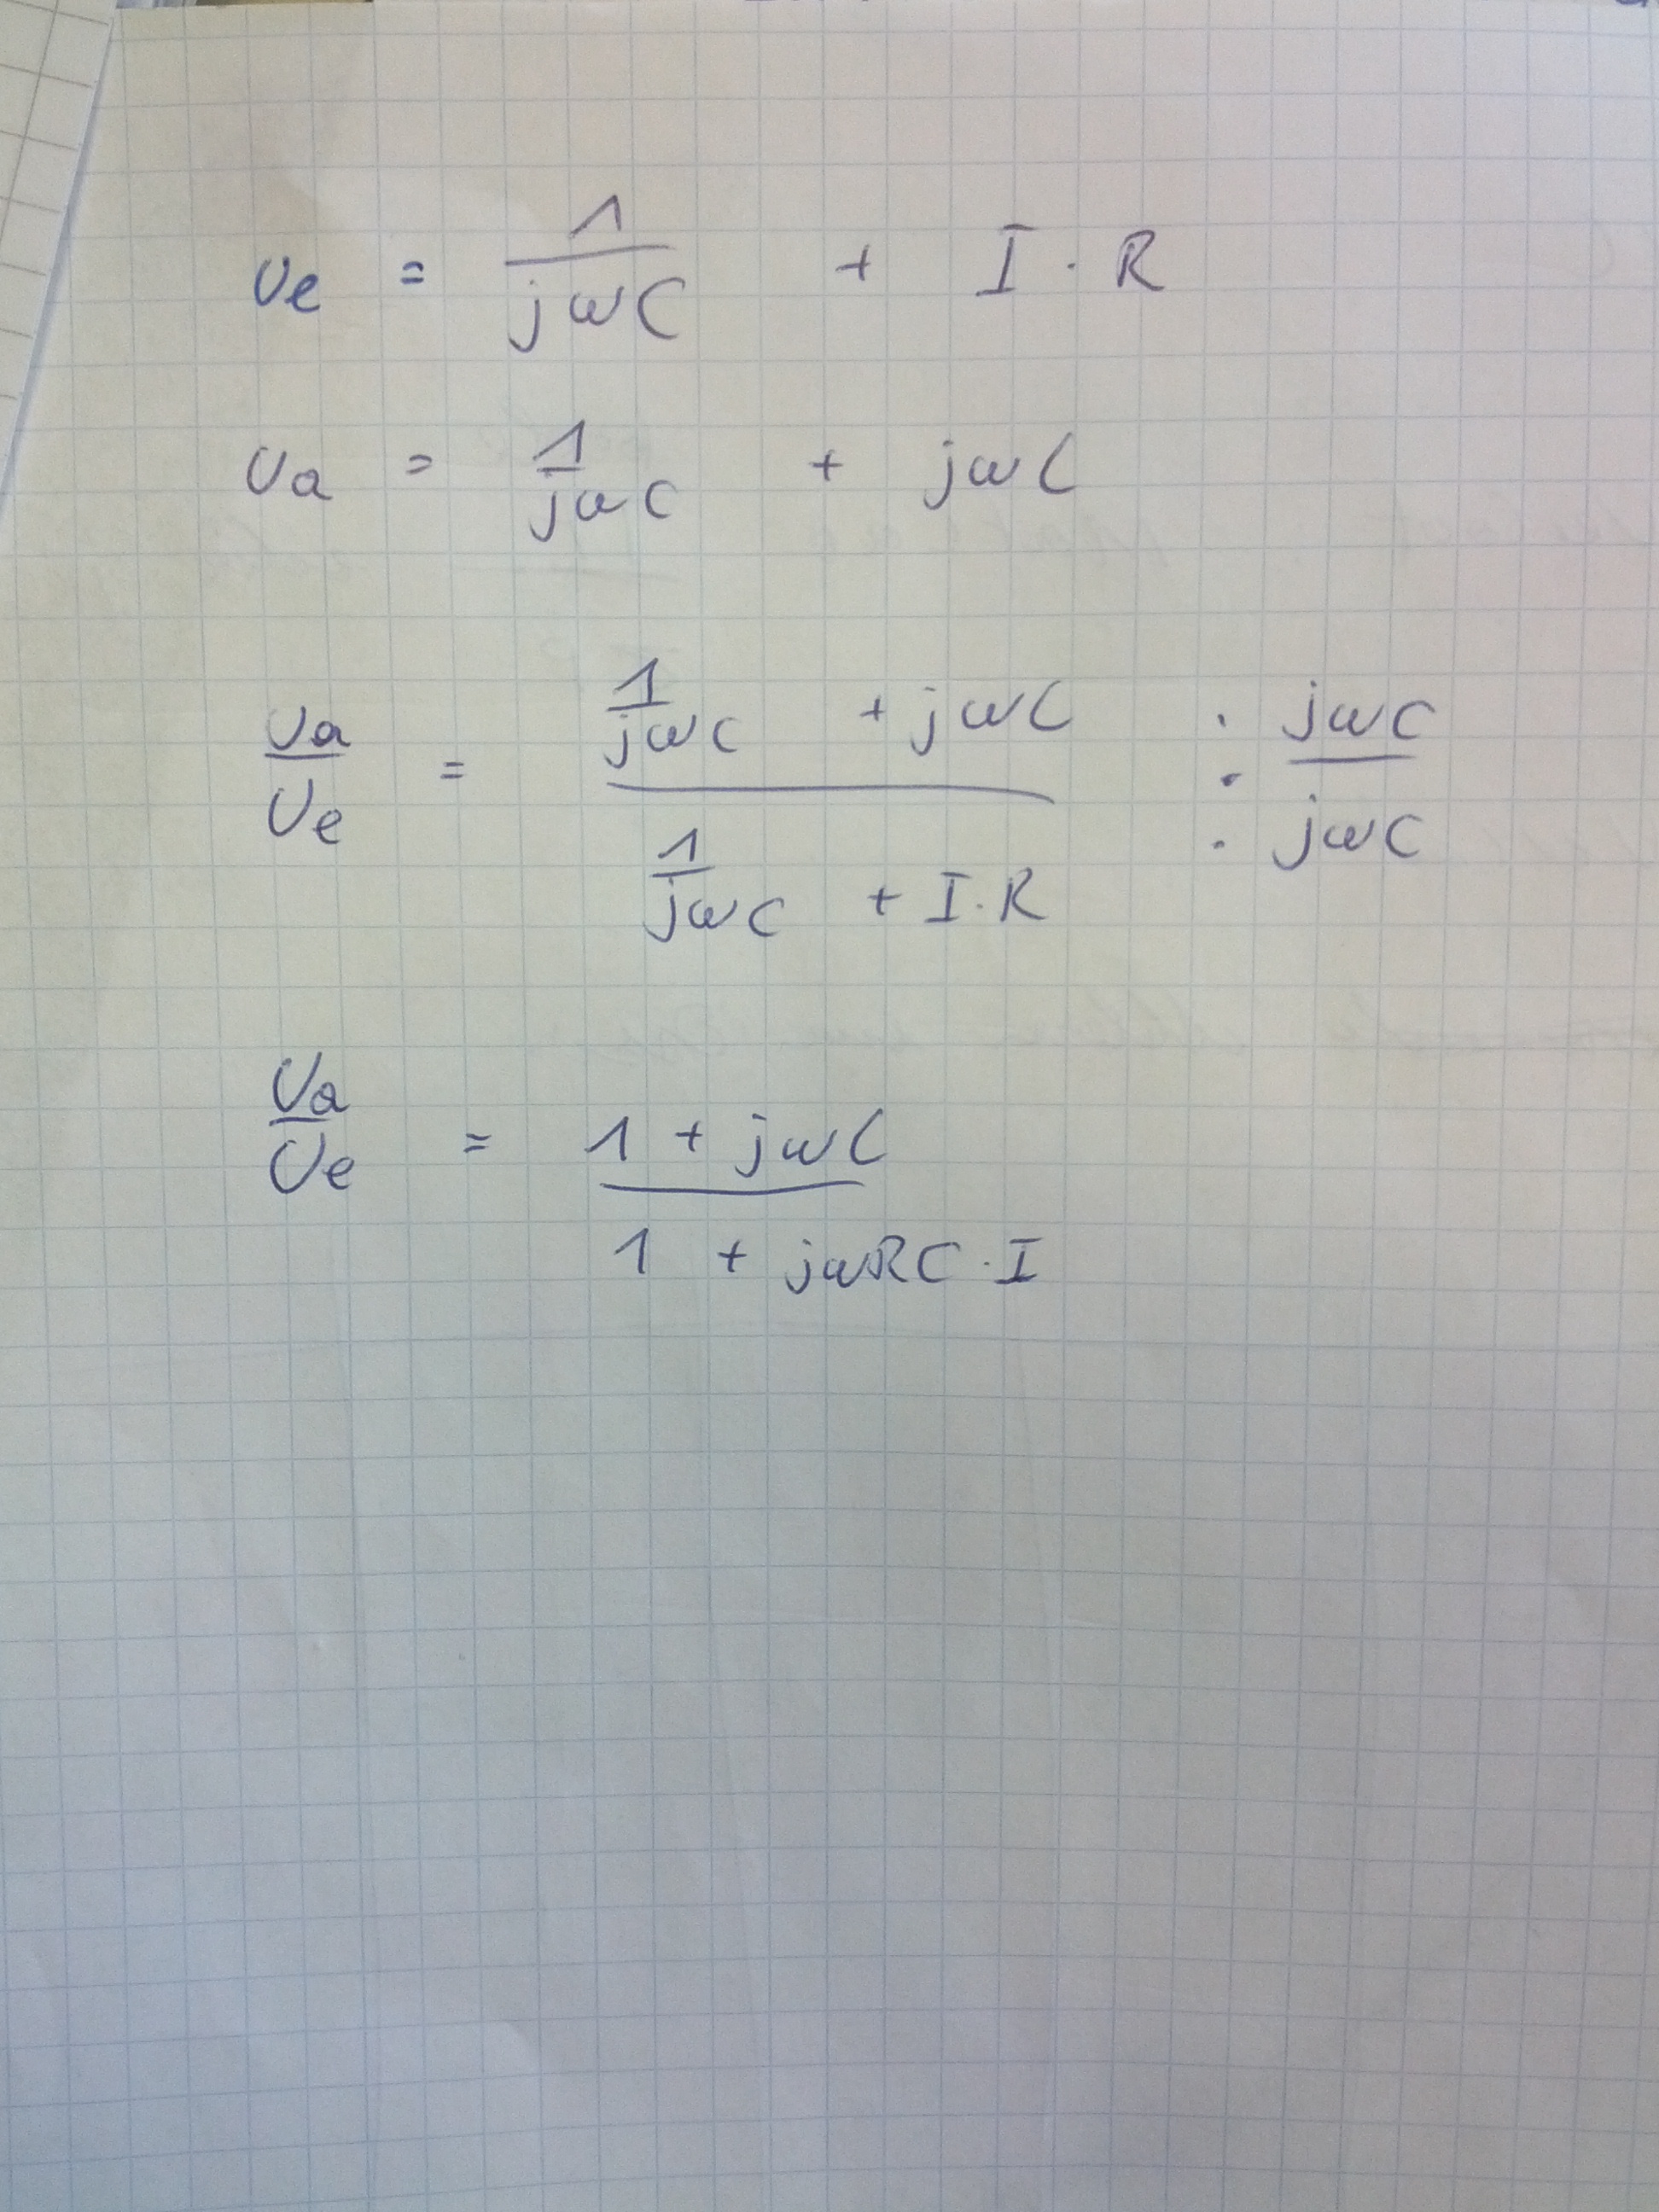 Ue = 1/jωC + I · R
Ua = 1/jωC + jωC
Ua/Ue = (1/jωC + jωC)/(1/jωC + I·R) : jωC/jωC
Ua/Ue = (1 + jωC)/(1 + jωRC · I)